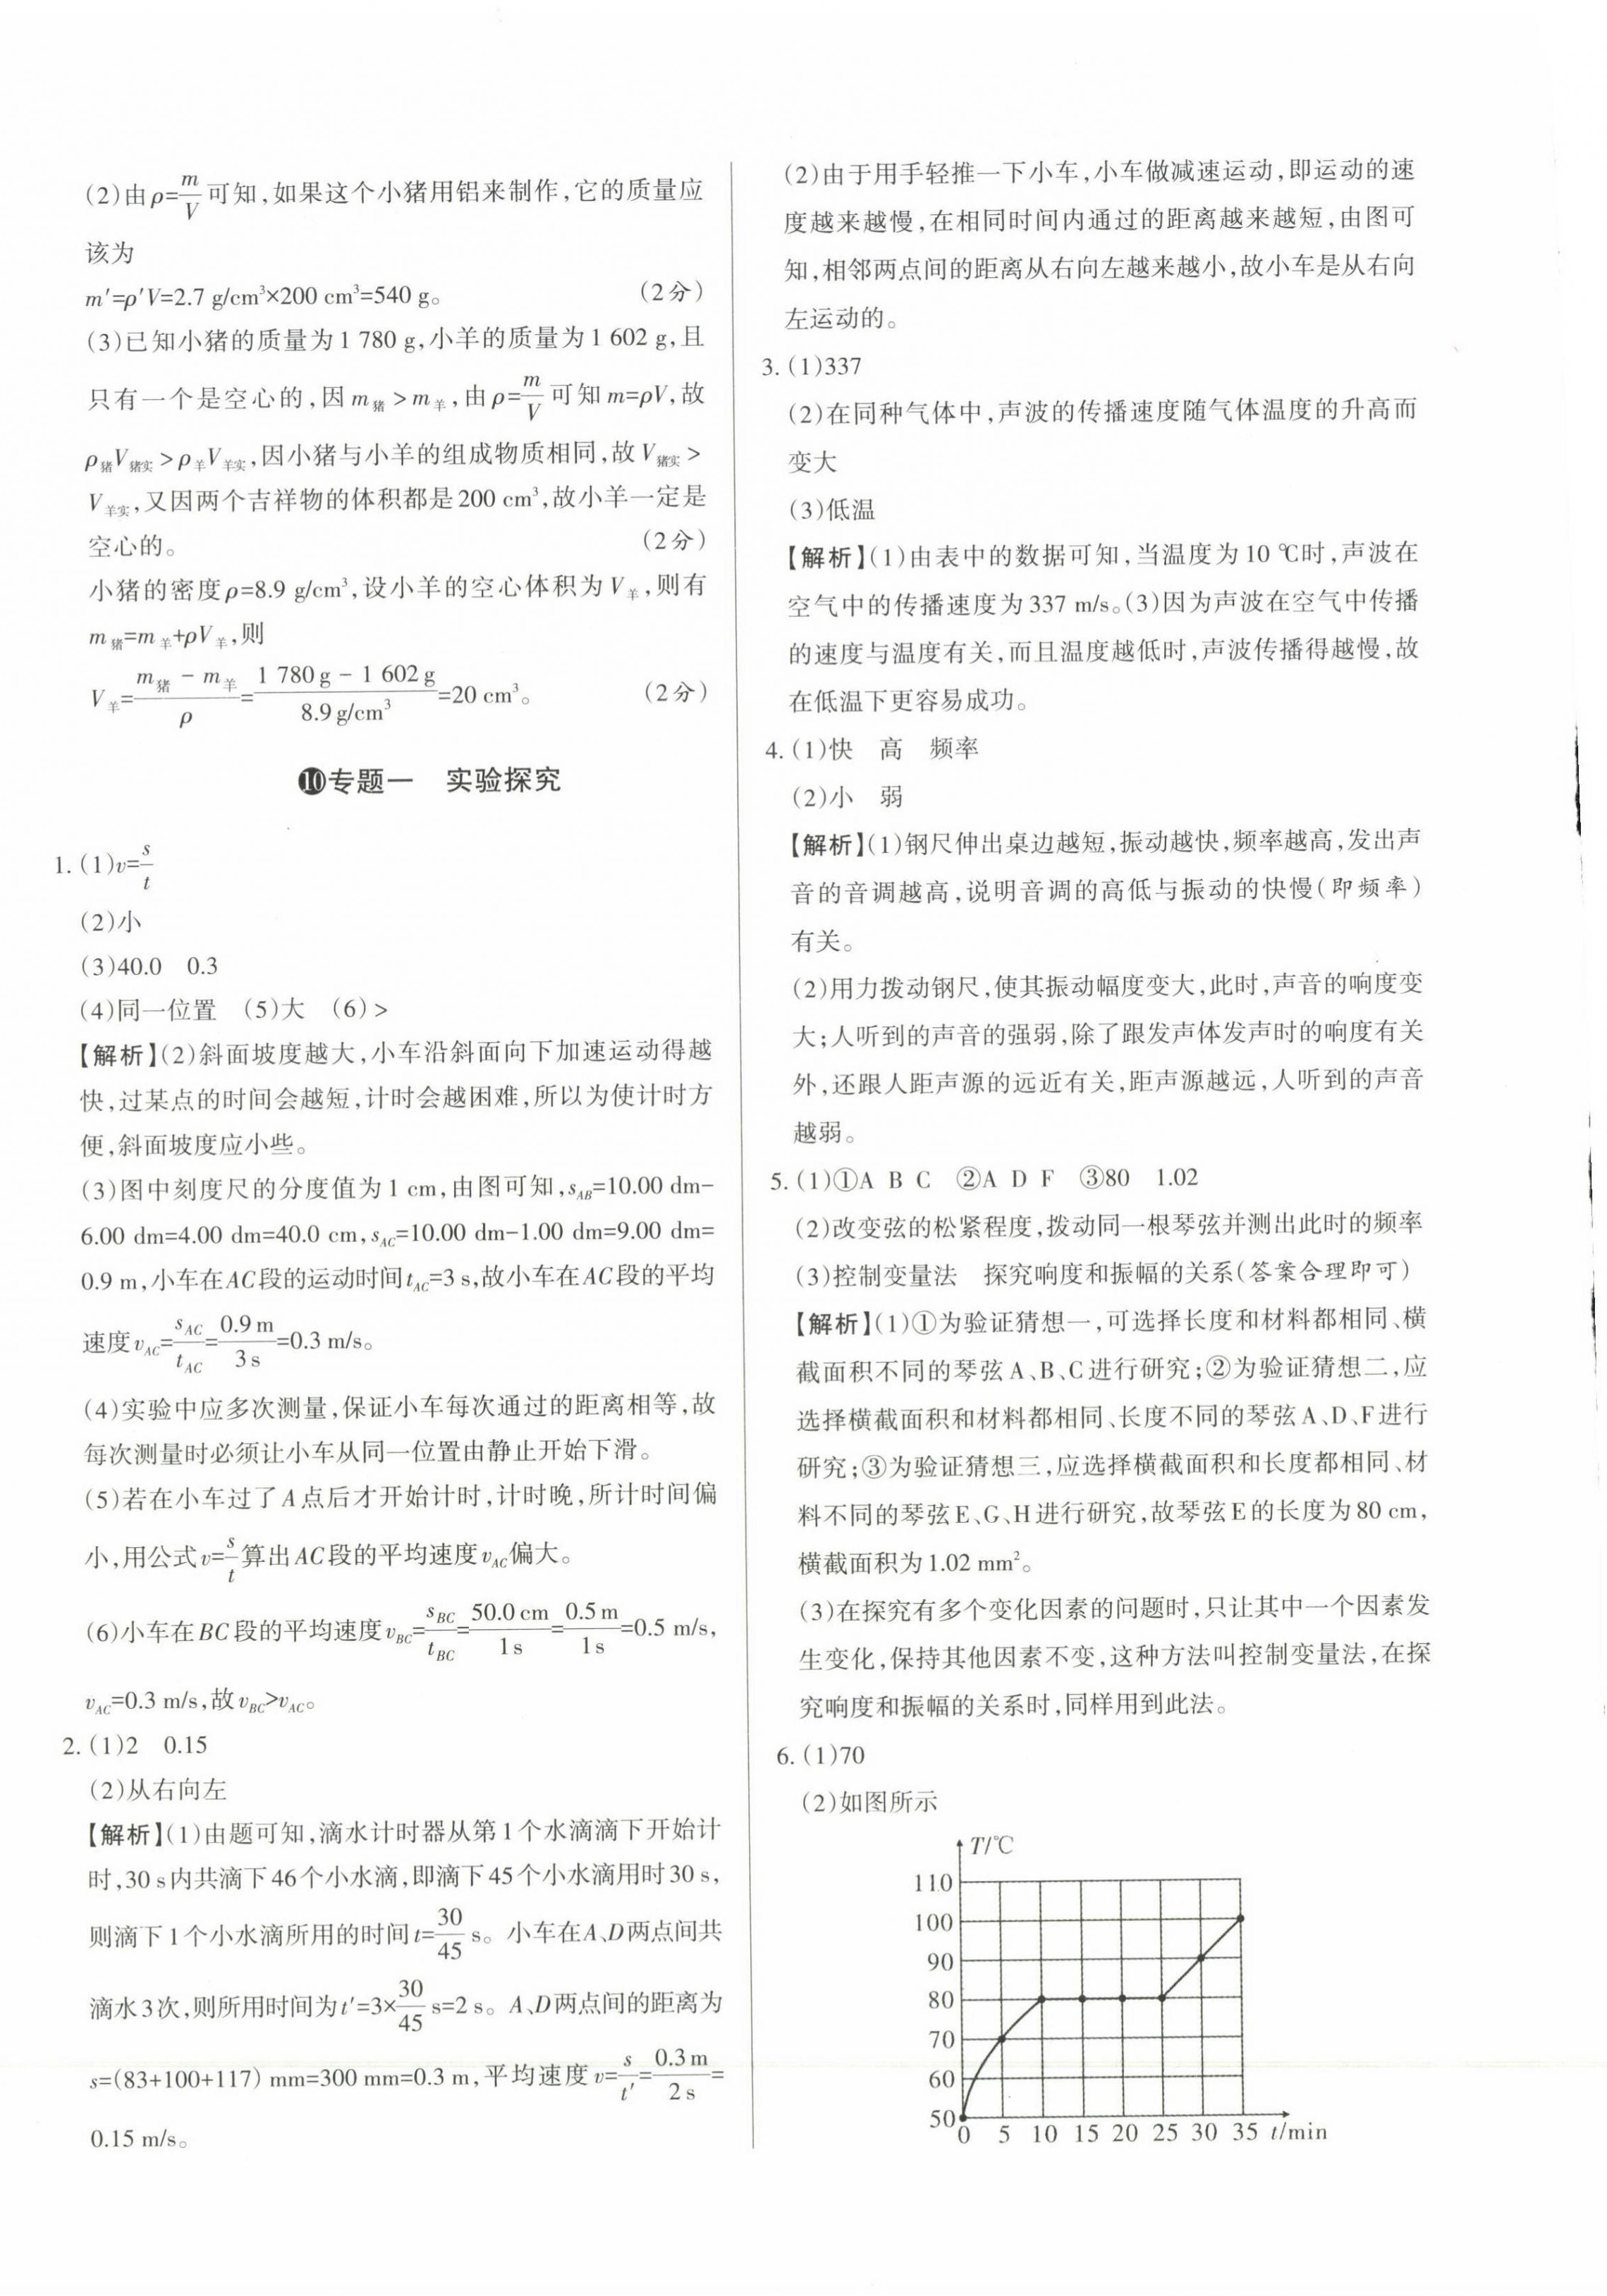 (2)由ρ=m/V可知,如果这个小猪用铝来制作,它的质量应
该为
m′=ρ′V=2.7 g/cm³×200 cm³=540 g。 (2分)
(3)已知小猪的质量为1 780 g,小羊的质量为1 602 g,且
只有一个是空心的,因m猪>m羊,由ρ=m/V可知m=ρV,故
ρ猪V猪实>ρ羊V羊实,因小猪与小羊的组成物质相同,故V猪实>
V羊实,又因两个吉祥物的体积都是200 cm³,故小羊一定是
空心的。 (2分)
小猪的密度ρ=8.9 g/cm³,设小羊的空心体积为V羊,则有
m猪=m羊+ρV羊,则
V羊=(m猪-m羊)/ρ=(1 780 g-1 602 g)/(8.9 g/cm³)=20 cm³。 (2分)
❿专题一 实验探究
1.(1)v=s/t
(2)小
(3)40.0 0.3
(4)同一位置 (5)大 (6)>
【解析】(2)斜面坡度越大,小车沿斜面向下加速运动得越
快,过某点的时间会越短,计时会越困难,所以为使计时方
便,斜面坡度应小些。
(3)图中刻度尺的分度值为1 cm,由图可知,s_AB=10.00 dm-
6.00 dm=4.00 dm=40.0 cm,s_AC=10.00 dm-1.00 dm=9.00 dm=
0.9 m,小车在AC段的运动时间t_AC=3 s,故小车在AC段的平均
速度v_AC=s_AC/t_AC=0.9 m/3 s=0.3 m/s。
(4)实验中应多次测量,保证小车每次通过的距离相等,故
每次测量时必须让小车从同一位置由静止开始下滑。
(5)若在小车过了A点后才开始计时,计时晚,所计时间偏
小,用公式v=s/t算出AC段的平均速度v_AC偏大。
(6)小车在BC段的平均速度v_BC=s_BC/t_BC=50.0 cm/1 s=0.5 m/1 s=0.5 m/s,
v_AC=0.3 m/s,故v_BC>v_AC。
2.(1)2 0.15
(2)从右向左
【解析】(1)由题可知,滴水计时器从第1个水滴滴下开始计
时,30 s内共滴下46个小水滴,即滴下45个小水滴用时30 s,
则滴下1个小水滴所用的时间t=30/45 s。小车在A、D两点间共
滴水3次,则所用时间为t′=3×30/45 s=2 s。A、D两点间的距离为
s=(83+100+117) mm=300 mm=0.3 m,平均速度v=s/t′=0.3 m/2 s=
0.15 m/s。
(2)由于用手轻推一下小车,小车做减速运动,即运动的速
度越来越慢,在相同时间内通过的距离越来越短,由图可
知,相邻两点间的距离从右向左越来越小,故小车是从右向
左运动的。
3.(1)337
(2)在同种气体中,声波的传播速度随气体温度的升高而
变大
(3)低温
【解析】(1)由表中的数据可知,当温度为10 ℃时,声波在
空气中的传播速度为337 m/s。(3)因为声波在空气中传播
的速度与温度有关,而且温度越低时,声波传播得越慢,故
在低温下更容易成功。
4.(1)快 高 频率
(2)小 弱
【解析】(1)钢尺伸出桌边越短,振动越快,频率越高,发出声
音的音调越高,说明音调的高低与振动的快慢(即频率)
有关。
(2)用力拨动钢尺,使其振动幅度变大,此时,声音的响度变
大;人听到的声音的强弱,除了跟发声体发声时的响度有关
外,还跟人距声源的远近有关,距声源越远,人听到的声音
越弱。
5.(1)①A B C ②A D F ③80 1.02
(2)改变弦的松紧程度,拨动同一根琴弦并测出此时的频率
(3)控制变量法 探究响度和振幅的关系(答案合理即可)
【解析】(1)①为验证猜想一,可选择长度和材料都相同、横
截面积不同的琴弦A、B、C进行研究;②为验证猜想二,应
选择横截面积和材料都相同、长度不同的琴弦A、D、F进行
研究;③为验证猜想三,应选择横截面积和长度都相同、材
料不同的琴弦E、G、H进行研究,故琴弦E的长度为80 cm,
横截面积为1.02 mm²。
(3)在探究有多个变化因素的问题时,只让其中一个因素发
生变化,保持其他因素不变,这种方法叫控制变量法,在探
究响度和振幅的关系时,同样用到此法。
6.(1)70
(2)如图所示
T/℃
110
100
90
80
70
60
50
0 5 10 15 20 25 30 35 t/min